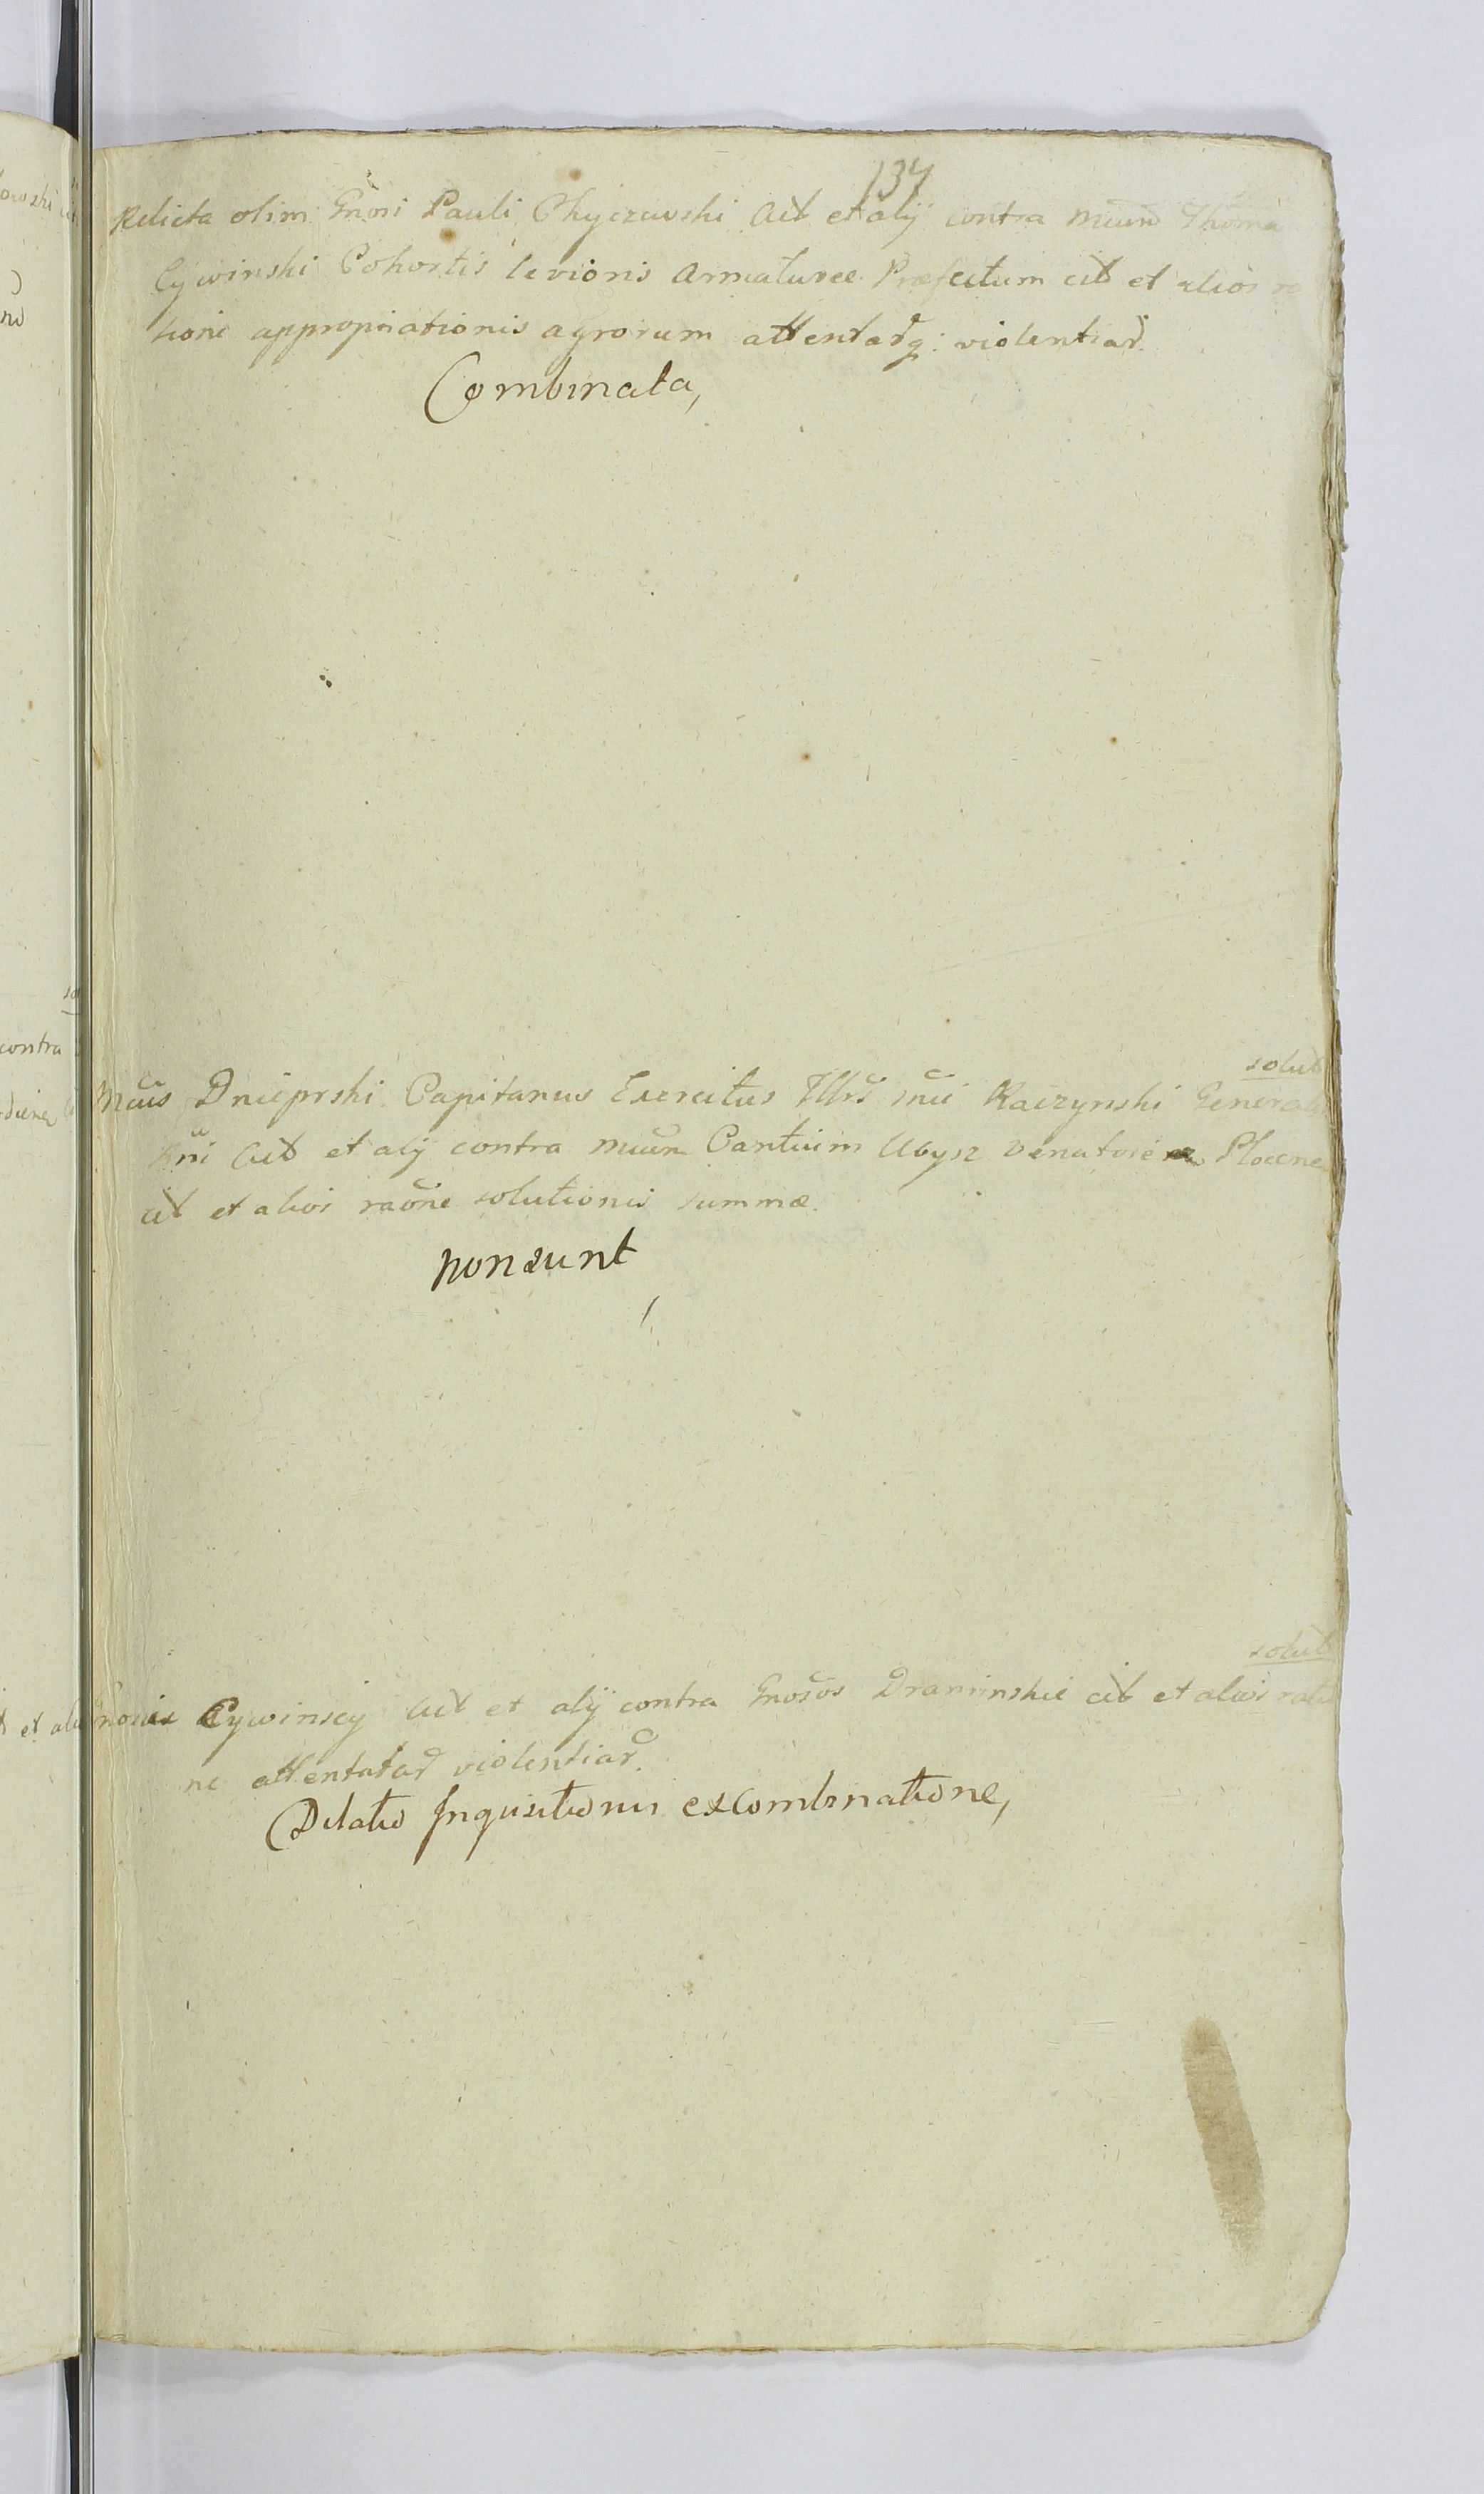 137
Relicta olim Gnosi Pauli Chyczewski Act et alij contra Mcum Thoma
Cywinski Cohortis levioris Armaturæ Præfectum cit et alios ra
tione appropriationis agrorum attentarq: violentiar.
Combinata,
solut
Mcus Dnieprski Capitanus Exercitus Illris Mci Raczynski Generalis
Rni Act et alij contra Mcum Cantium Ubysz Venatorem Plocen
cit et alios raone solutionis summæ.
non sunt
solut
Gnosi Cywinscy Act et alij contra Gnosos Draminskie cit et alios ratio
ne attentatar violentiar.
Dilatio Inquisitionis ex Combinatione,